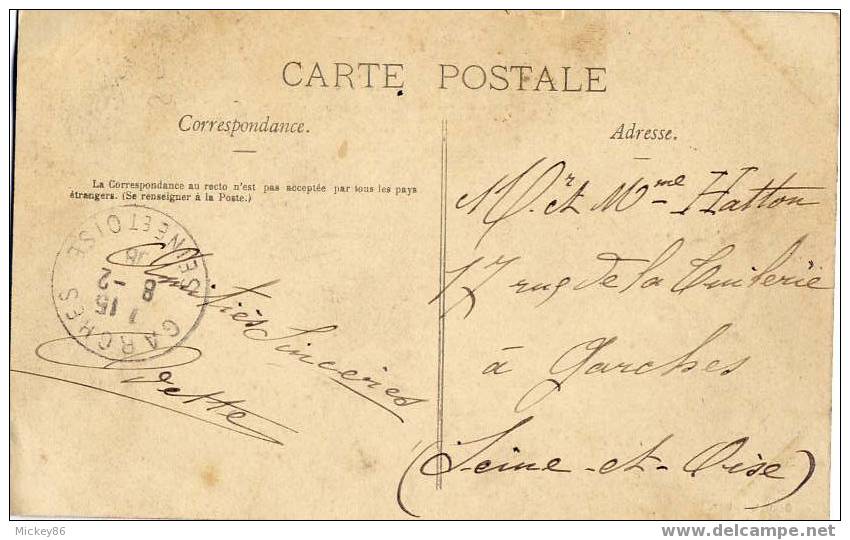 CARTE POSTALE
Correspondance.
Adresse.
La Correspondance au recto n'est pas acceptée par tous les pays
étrangers. (Se renseigner à la Poste.)
Amitiés Sincères
Odette
Mr et Mme Hatton
17 rue de la Tuilerie
à Garches
(Seine-et-Oise)
GARCHES
SEINE ET OISE
1 15
8 -2
08
Mickey86
delcampe.net